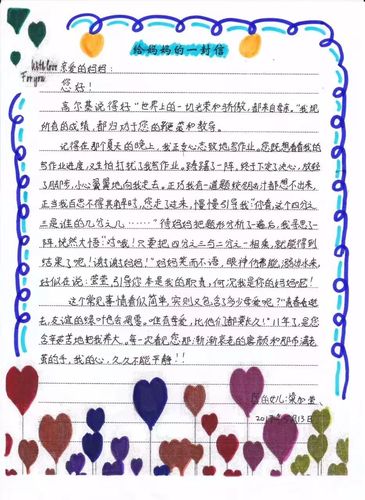 给妈妈的一封信
With love
For you
亲爱的妈妈：
您好！
高尔基说得好"世界上的一切光荣和骄傲，都来自母亲。"我现
所有的成绩，都归功于您的鞭策和教导。
记得在那个夏天的晚上，我正专心致致地写作业。您既想看看我的
写作业进度，又生怕打扰了我写作业。踌躇了一阵，终于下定了决心，放轻
了脚步，小心翼翼地向我走去。正巧我有一道题绞尽脑汁都想不出来，
正当我百思不得其解时，您走了过来，慢慢引导我"你看，这个四分之
三是谁的几分之几……"待妈妈把题形分析了一遍后，我寻思了一
阵，恍然大悟："对哦！只要把四分之三与二分之一相乘，就能得到
结果了呢！谢了谢了妈妈！"妈妈笑而不语，眼神仿佛能
好似在说：莹莹，引导你本是我的职责，何况我是你的妈妈呢！
这个常见事情看似简单，实则又包含了多少母爱呢？"青春会逝
去，友谊的绿叶也会凋零。唯有母爱，比他们都要长久！"11年了，是您
含辛茹苦地把我养大，每一次看见您那渐渐衰老的容颜和那布满老
茧的手，我的心，久久不能平静！！
您的女儿：梁加莹
13日